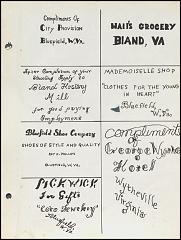 Compliments Of
City Provision
Bluefield, W.Va.
HALL'S GROCERY
BLAND, VA
After Completion of your
Schooling Apply to
Bland Hosiery
Mill
for good paying
Employment
MADEMOISELLE SHOP
"CLOTHES FOR THE YOUNG
IN HEART"
Bluefield,
W.Va.
Bluefield Shoe Company
SHOES OF STYLE AND QUALITY
BLUEFIELD, W.VA.
Compliments
of
George Wythe
Hotel
Wytheville
Virginia
PICKWICK
For Gifts
Bluefield
W.Va.